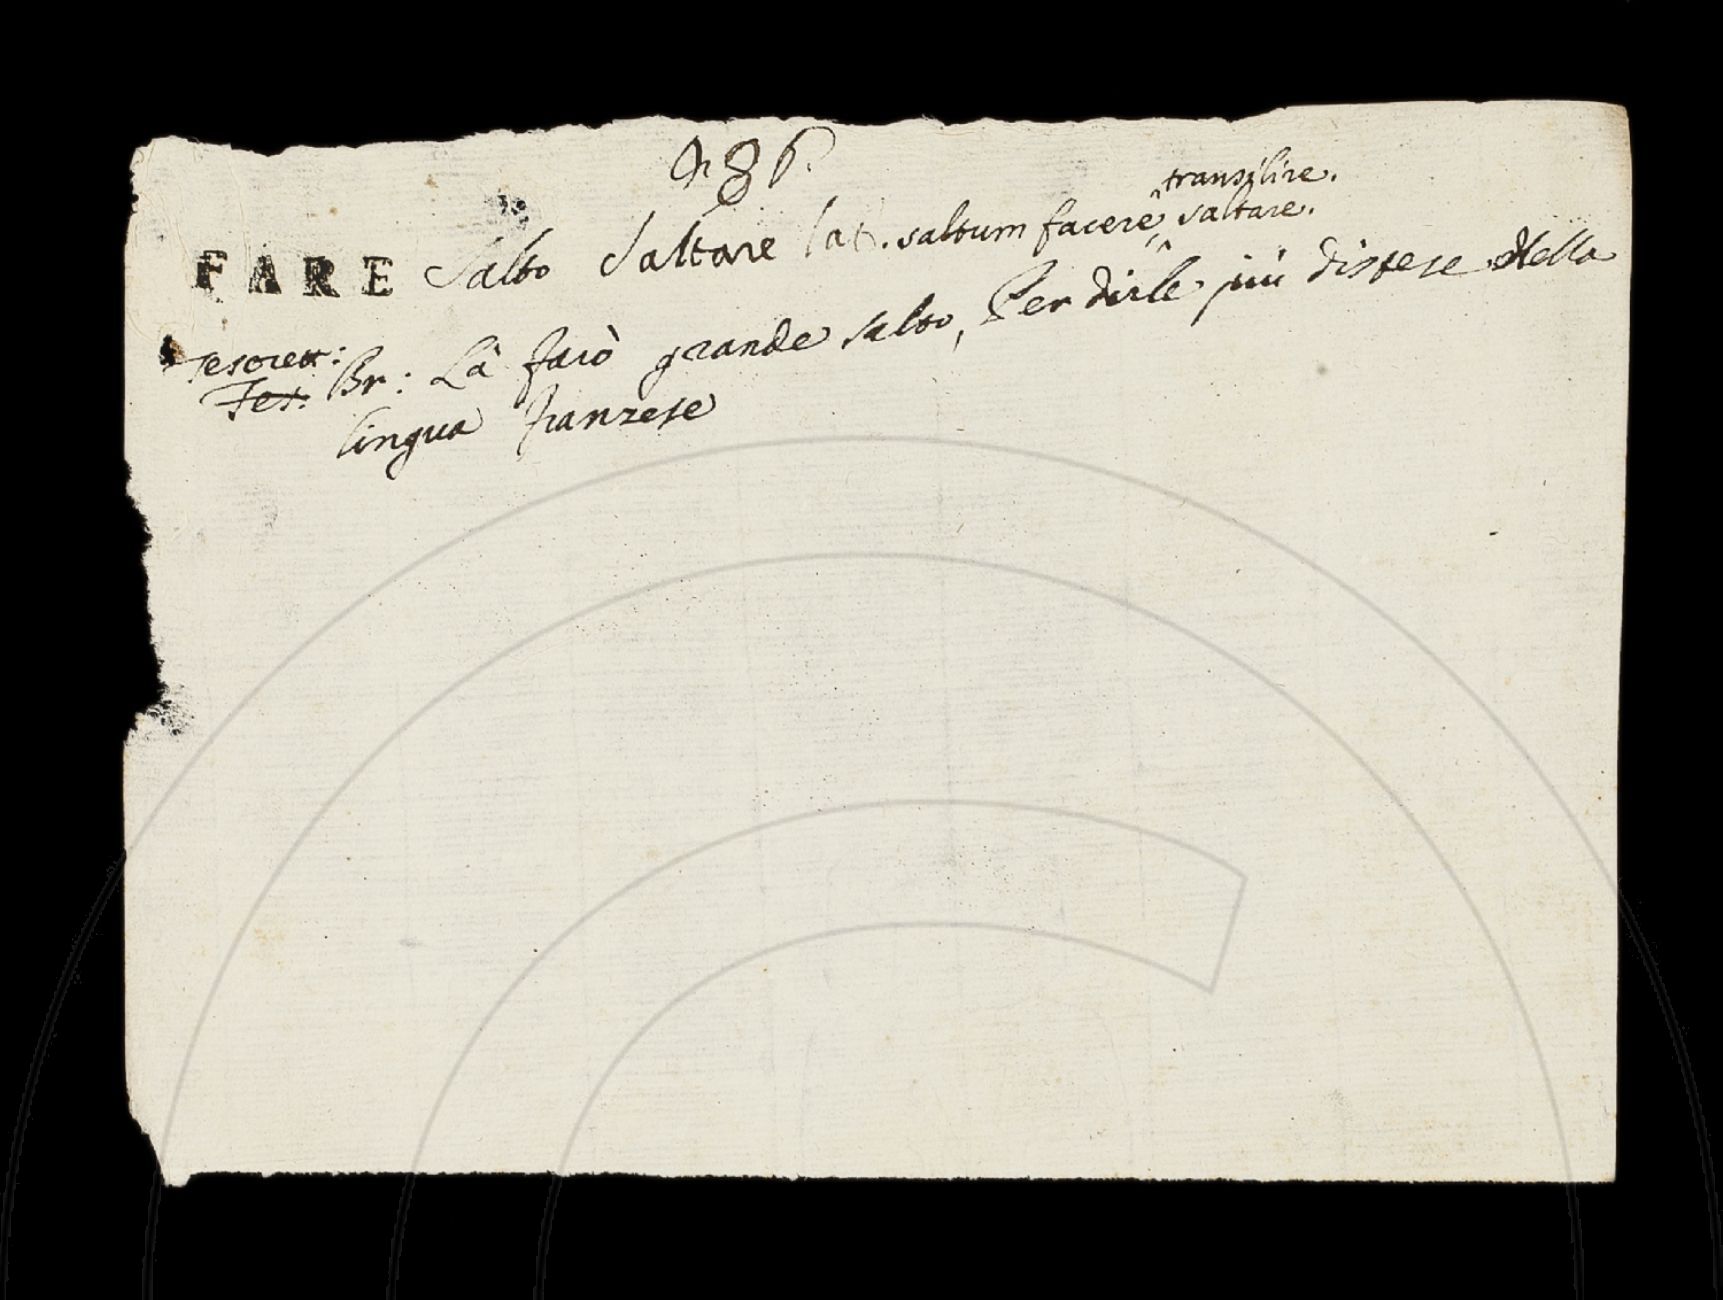 486.
transilire.
FARE Salto Saltare lat. saltum facere, saltare.
Tesorett: Br: Là farò grande salto, Per dirle più distese della
Tes.
lingua franzese